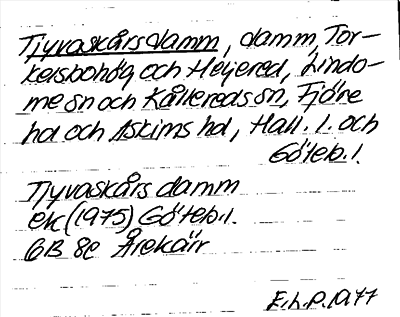 Tjyvaskårsdamm, damm, Tor-
kelsbohög och Heljered, Lindo-
me sn och Kållereds sn, Fjäre
hd och Askims hd, Hall. l. och
Göteb. l.
Tjyvaskårs damm
ek (1975) Göteb. l.
6B 8e Årekärr
E.L.P. 1977